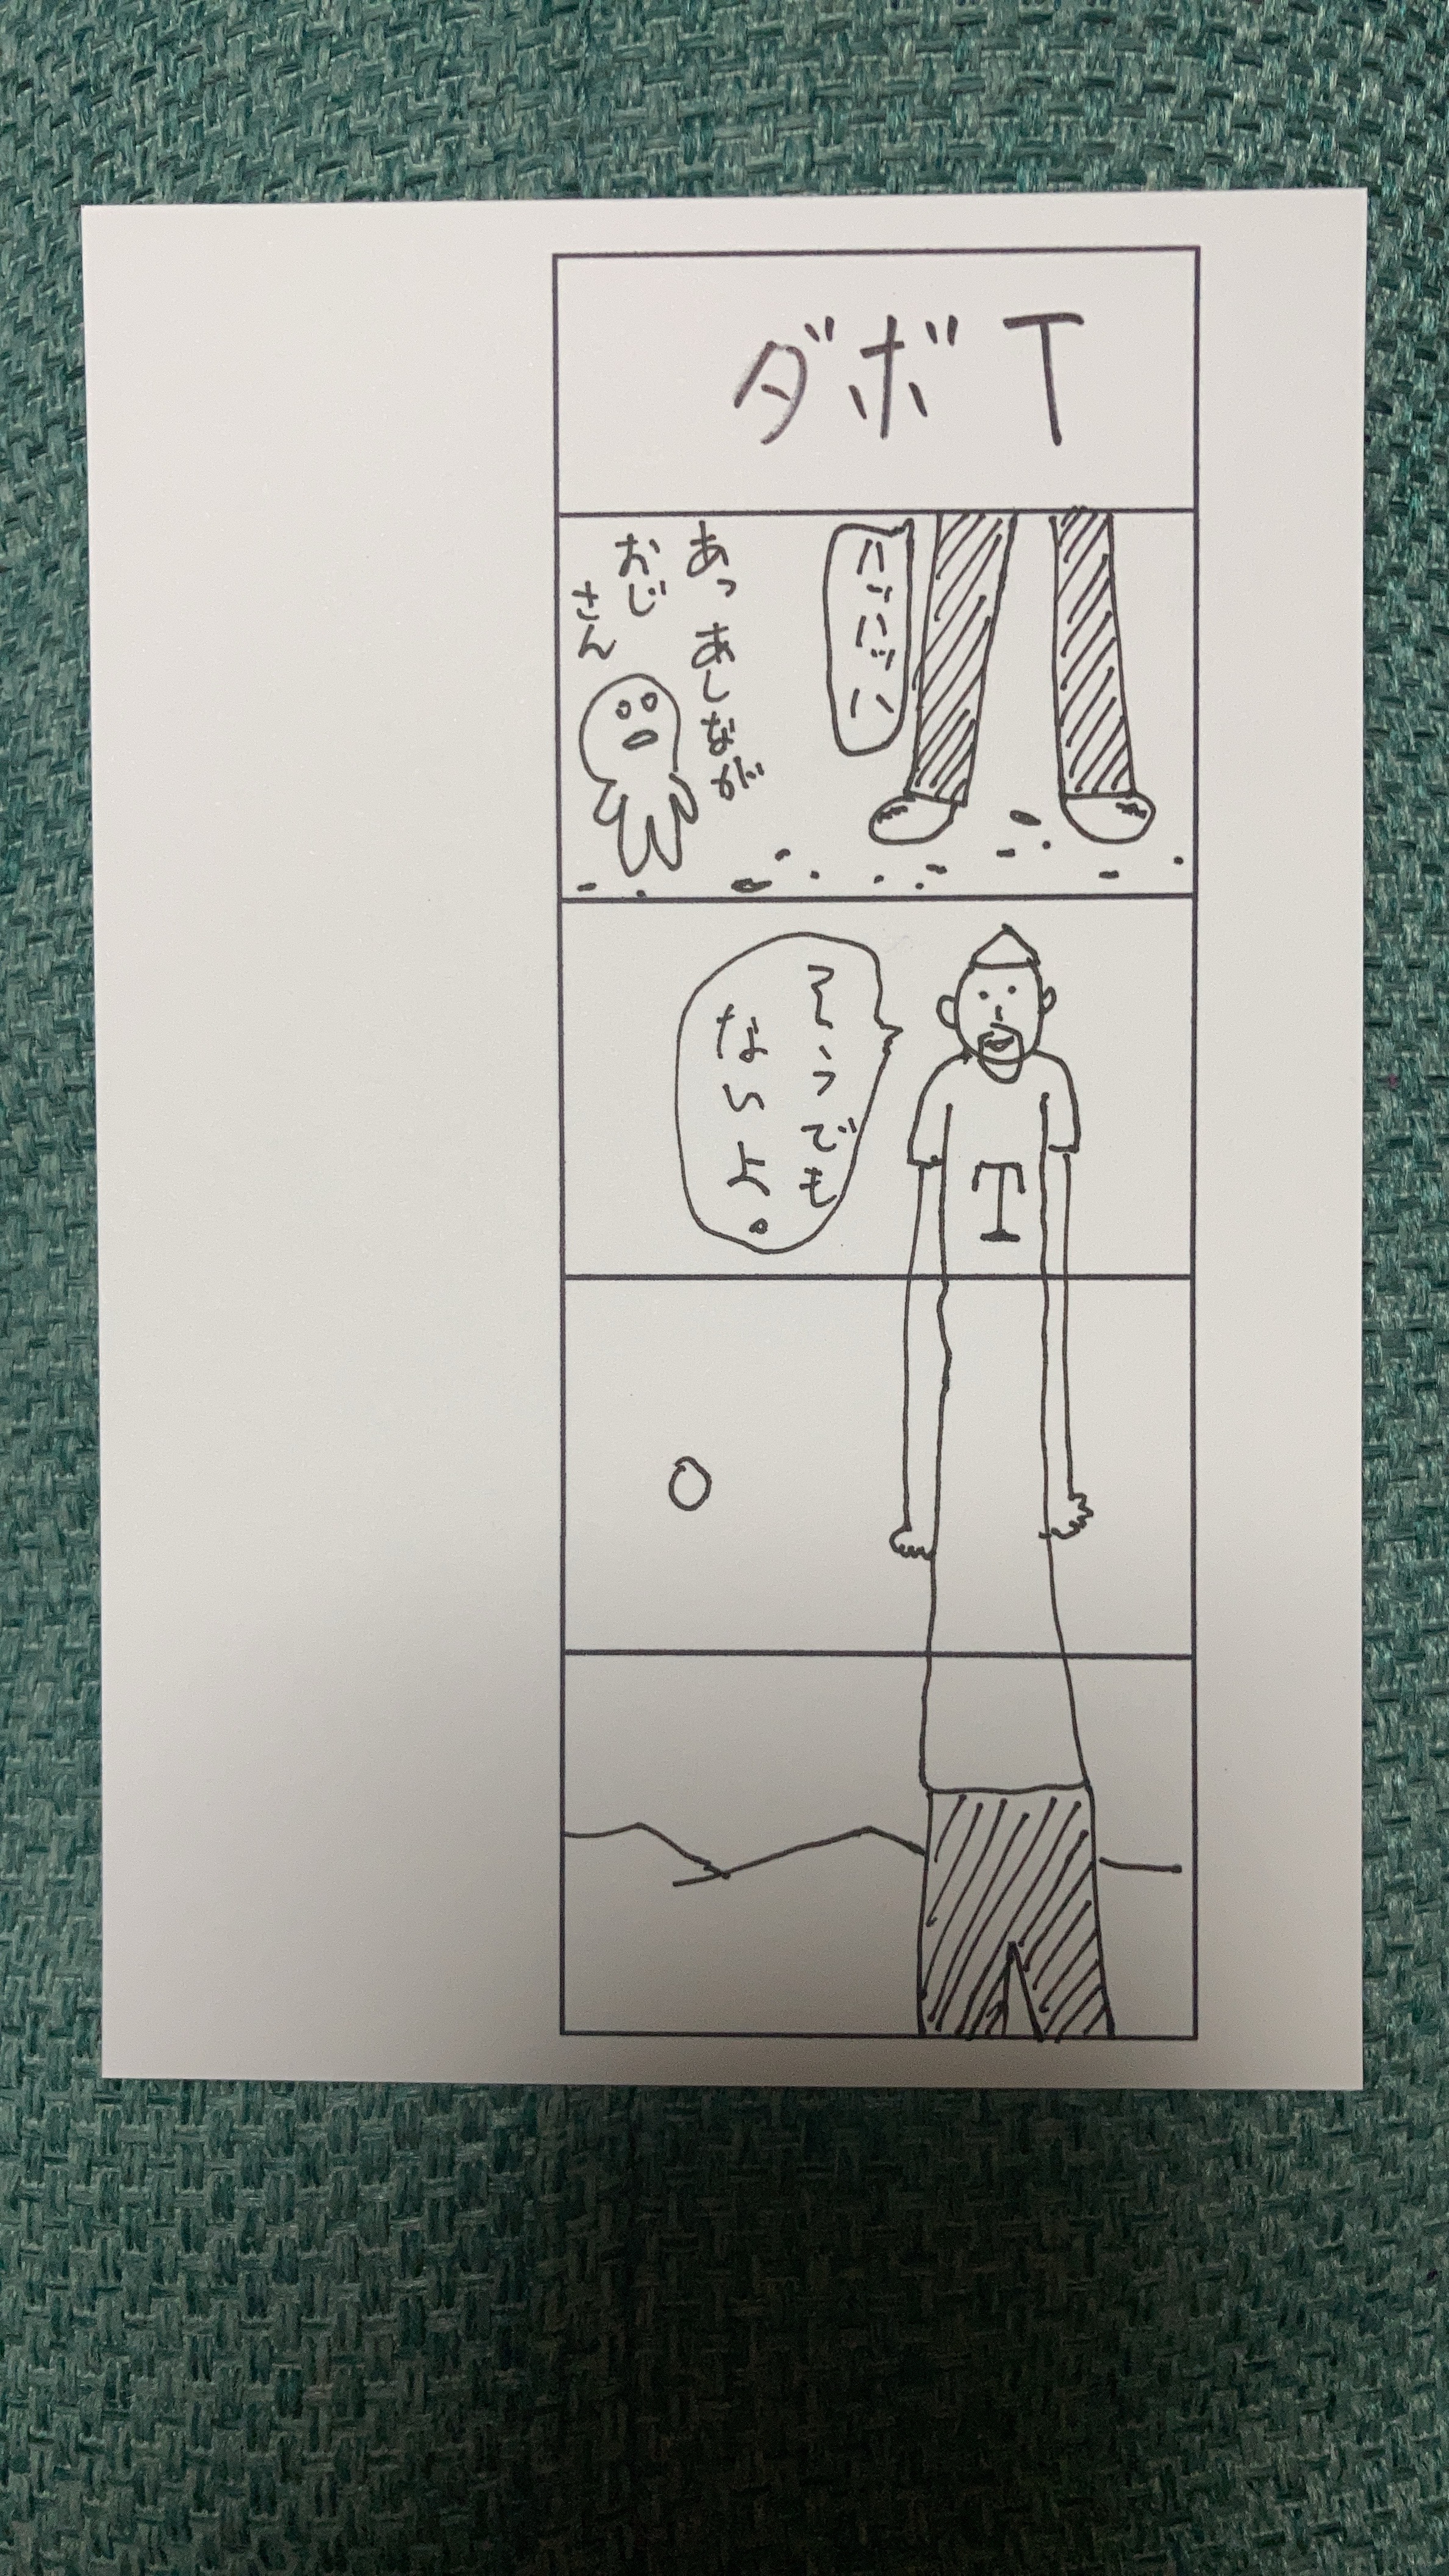 ダボT
ハッハッハ
あっ あしなが
おじ
さん
そうでも
ないよ。
T